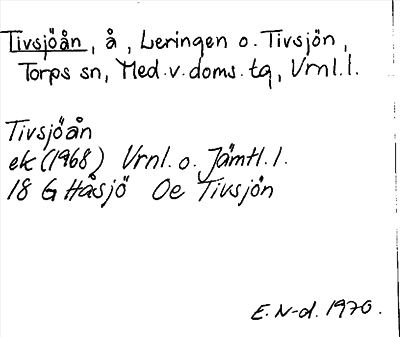 Tivsjöån, å, Leringen o. Tivsjön,
Torps sn, Med.v.doms.tg, Vrnl.l.
Tivsjöån
ek (1968) Vrnl. o. Jämtl.l.
18 G Håsjö Oe Tivsjön
E. N-d. 1970.